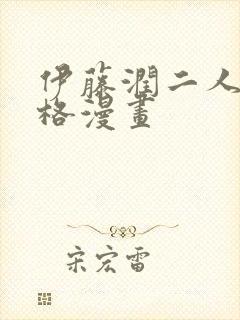 伊藤潤二人
格漫畫
宋宏雷